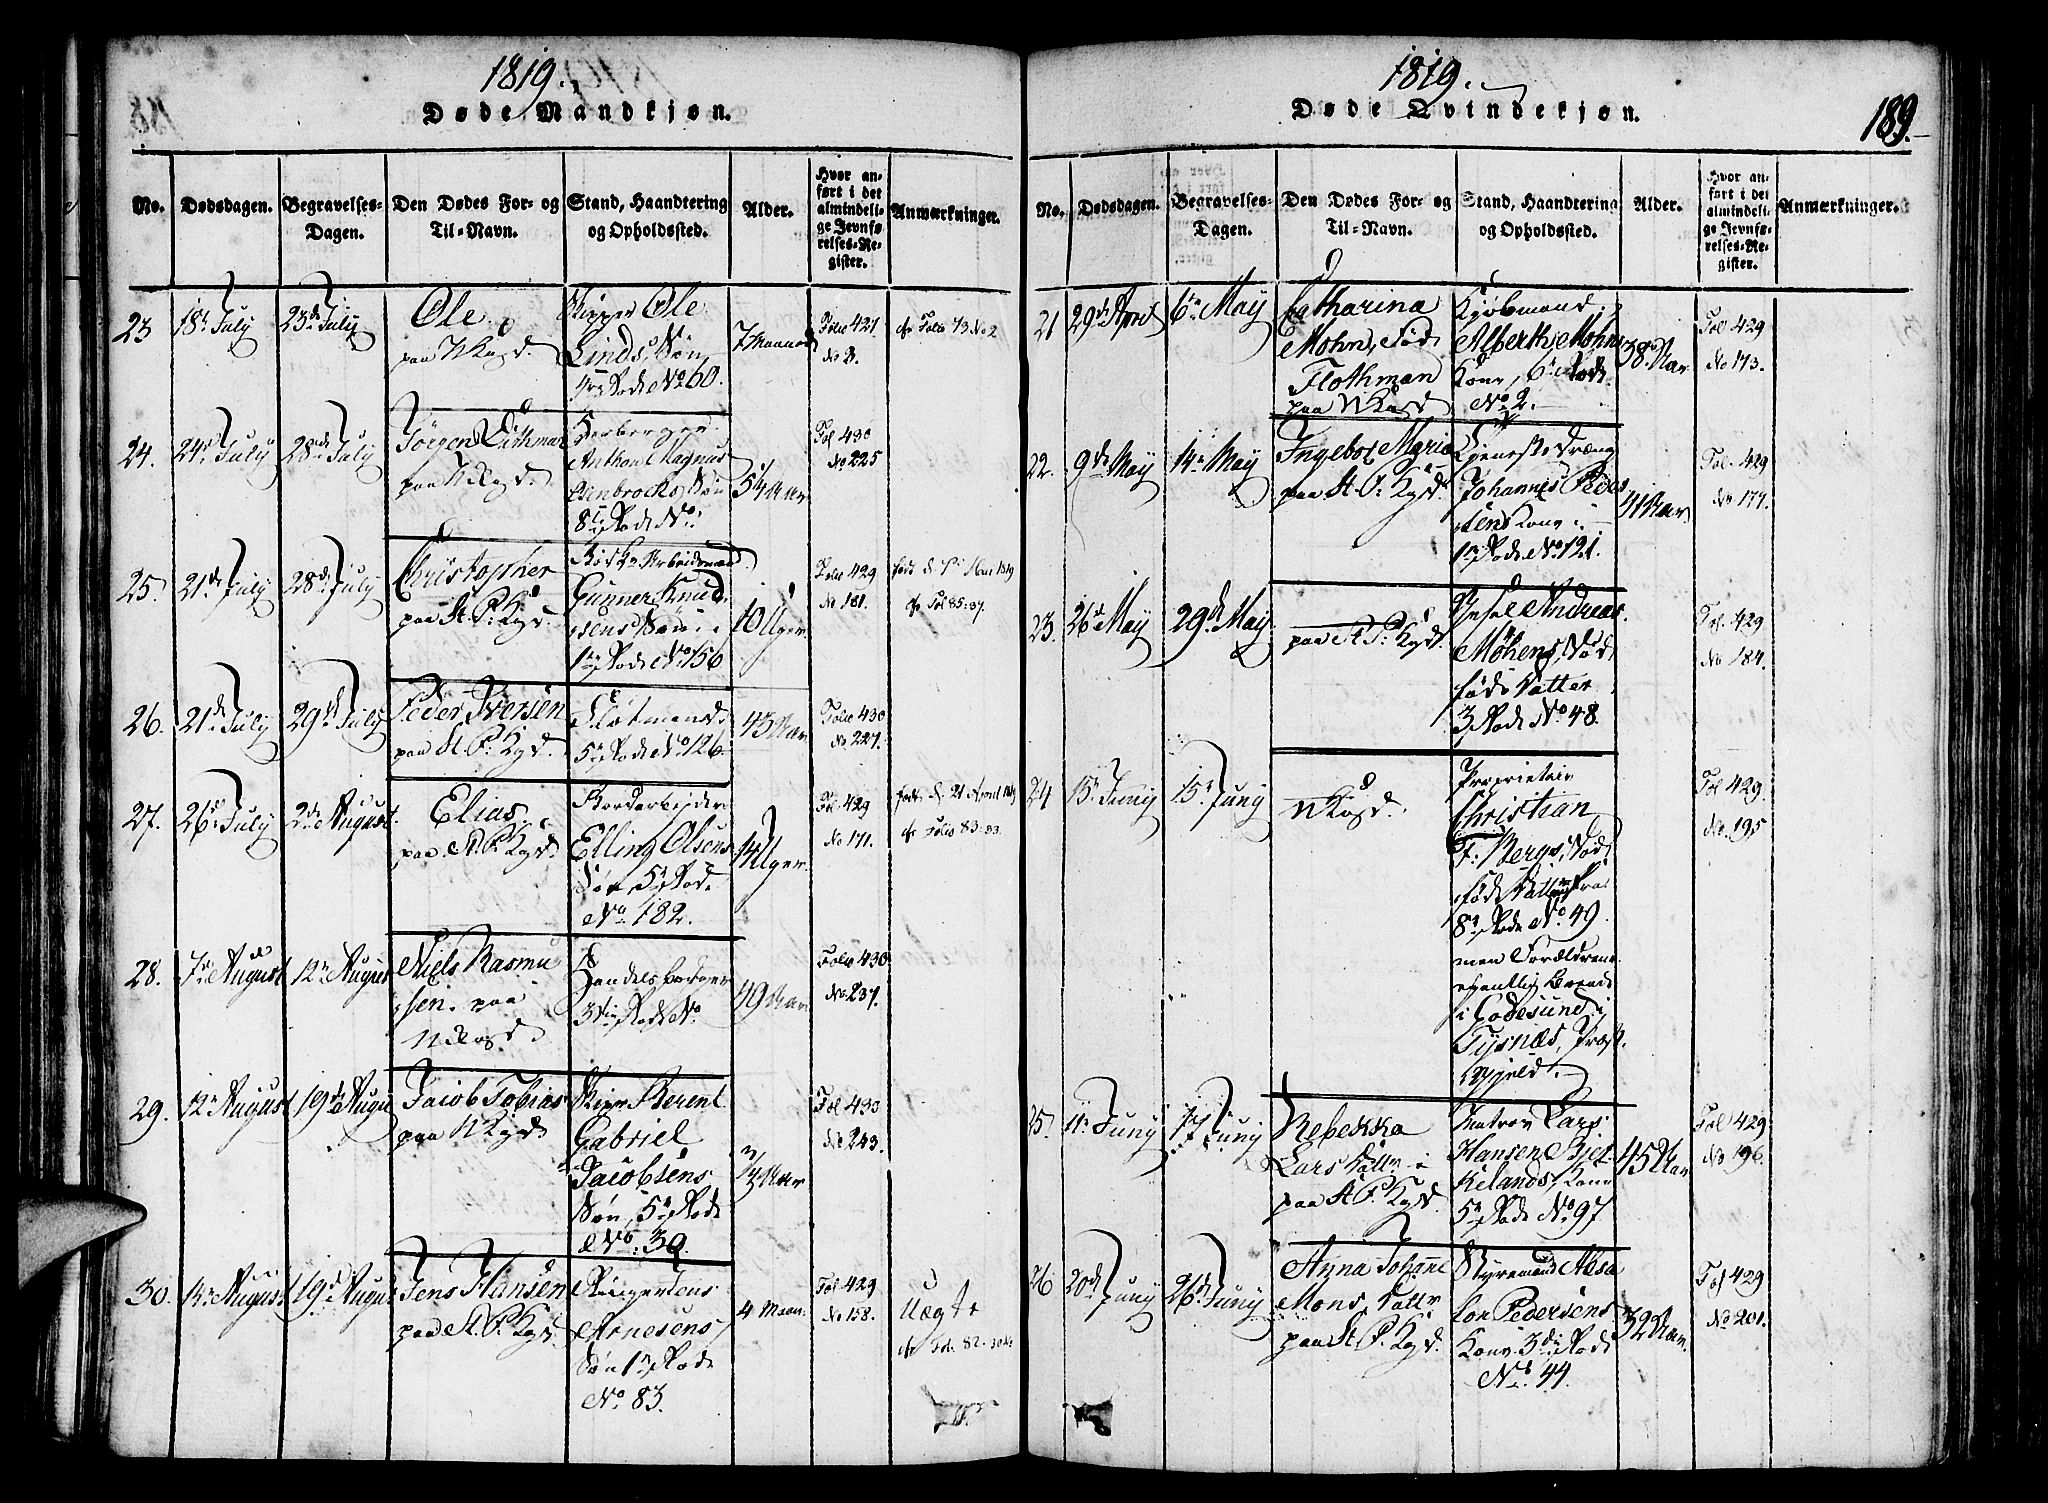 1819.
Døde Mandkjøn.
No.
Dødsdagen.
Begravelses-
Dagen.
Den Dødes For- og
Til-Navn.
Stand, Haandtering
og Opholdssted.
Alder.
Hvor an-
ført i det
almindeli-
ge Jevnfø-
relses-Re-
gister.
Anmærkninger.
23
18de July
23de July
Ole
paa NKgd.
Skipper Ole
Linds Søn
4re Rode No 60.
7 Maaned
Folio 421
No 8.
cfr Folio 73. No 2
24.
24de July
28de July
Jørgen Lithmar
Herberger
Anthon Magnus
Søn
8de Rode No
5¼ Aar
Fol 430
No 225
25.
21de July
28de July
Christopher
paa St. P. Kgd.
Arbeidsmand
Gunner Knud
sens Søn
1ste Rode No 156
10 Uger
Folio 429
No 181.
født d. Mai 1819
cfr Fol 85: 37.
26.
21de July
29de July
Peder Iversen
paa St. P. Kgd.
5te Rode No 126
45 Aar
Folio 430
No 227.
27.
26de July
2de August.
Elias
paa St. P. Kgd.
Elling Olsens
Søn, 5te Rode
No 182.
14 Uger
Fol 429
No 171.
født d. 21 April 1819
cfr Folio 83: 33.
28.
7de August
12te August
Niels Rasmu
sen paa
NKgd.
Handels Borger
3die Rode No
49 Aar
Folio 430
No 237.
29.
12te August
19de Augu
Jacob Tobias
paa NKgd
Skipper Berent
Gabriel
Jacobsens
Søn, 5te Rode
No 30.
Aar
Fol 430
No 243.
30.
14de August
19de Augus
Jens Hansen
paa St. P. Kgd.
Arnesens
Søn 1ste Rode
No 83.
4 Maan.
Fol 429
No 158.
Uægte
cfr Fol. 82: 30
1819.
Døde Qvindekjøn.
189.
No.
Dødsdagen.
Begravelses-
Dagen.
Den Dødes For- og
Til-Navn.
Stand, Haandtering
og Opholdssted.
Alder.
Hvor an-
ført i det
almindeli-
ge Jevnfø-
relses-Re-
gister.
Anmærkninger.
21
29de April
6te May
Catharina
Mohn, fød
Flothman
paa NKgd
Kjøbmand
Alberth Mohns
Kone, 6te Rode
No 2.
38 Aar
Fol 429
No 173.
22.
9de May
14de May
Ingebor Maria
paa St. P. Kgd.
Tieneste Dræng
Johannes Peder
sens Kone
1ste Rode No 121.
41 Aar
Fol. 429
No 177.
23.
26de May
29de May
paa St. P. Kgd.
Andreas
Møhens, død
fødte Datter
3 Rode No 48.
Fol. 429
No 184.
24
15de Juny
15de Juny
NKgd.
Proprietair
Christian
F. Bergs, død
født
8de Rode No 49.
men Forældrene
egentlig boende
i Godesund i
Tysnæs Præste
gjeld.
Fol 429.
No. 195
25.
11te Juny
17de Juny
Rebekka
Lars Datter
paa St. P. Kgd.
Matros Lars
Hansen
Kone
5te Rode No 97
45 Aar
Fol 429
No 196.
26
20de Juny
26de Juny
Anna Johanne
Mons Datter
paa St. P. Kgd.
Styremand
Pedersens
Kone 3die Rode
No 44.
32 Aar.
Fol 429
No 201.